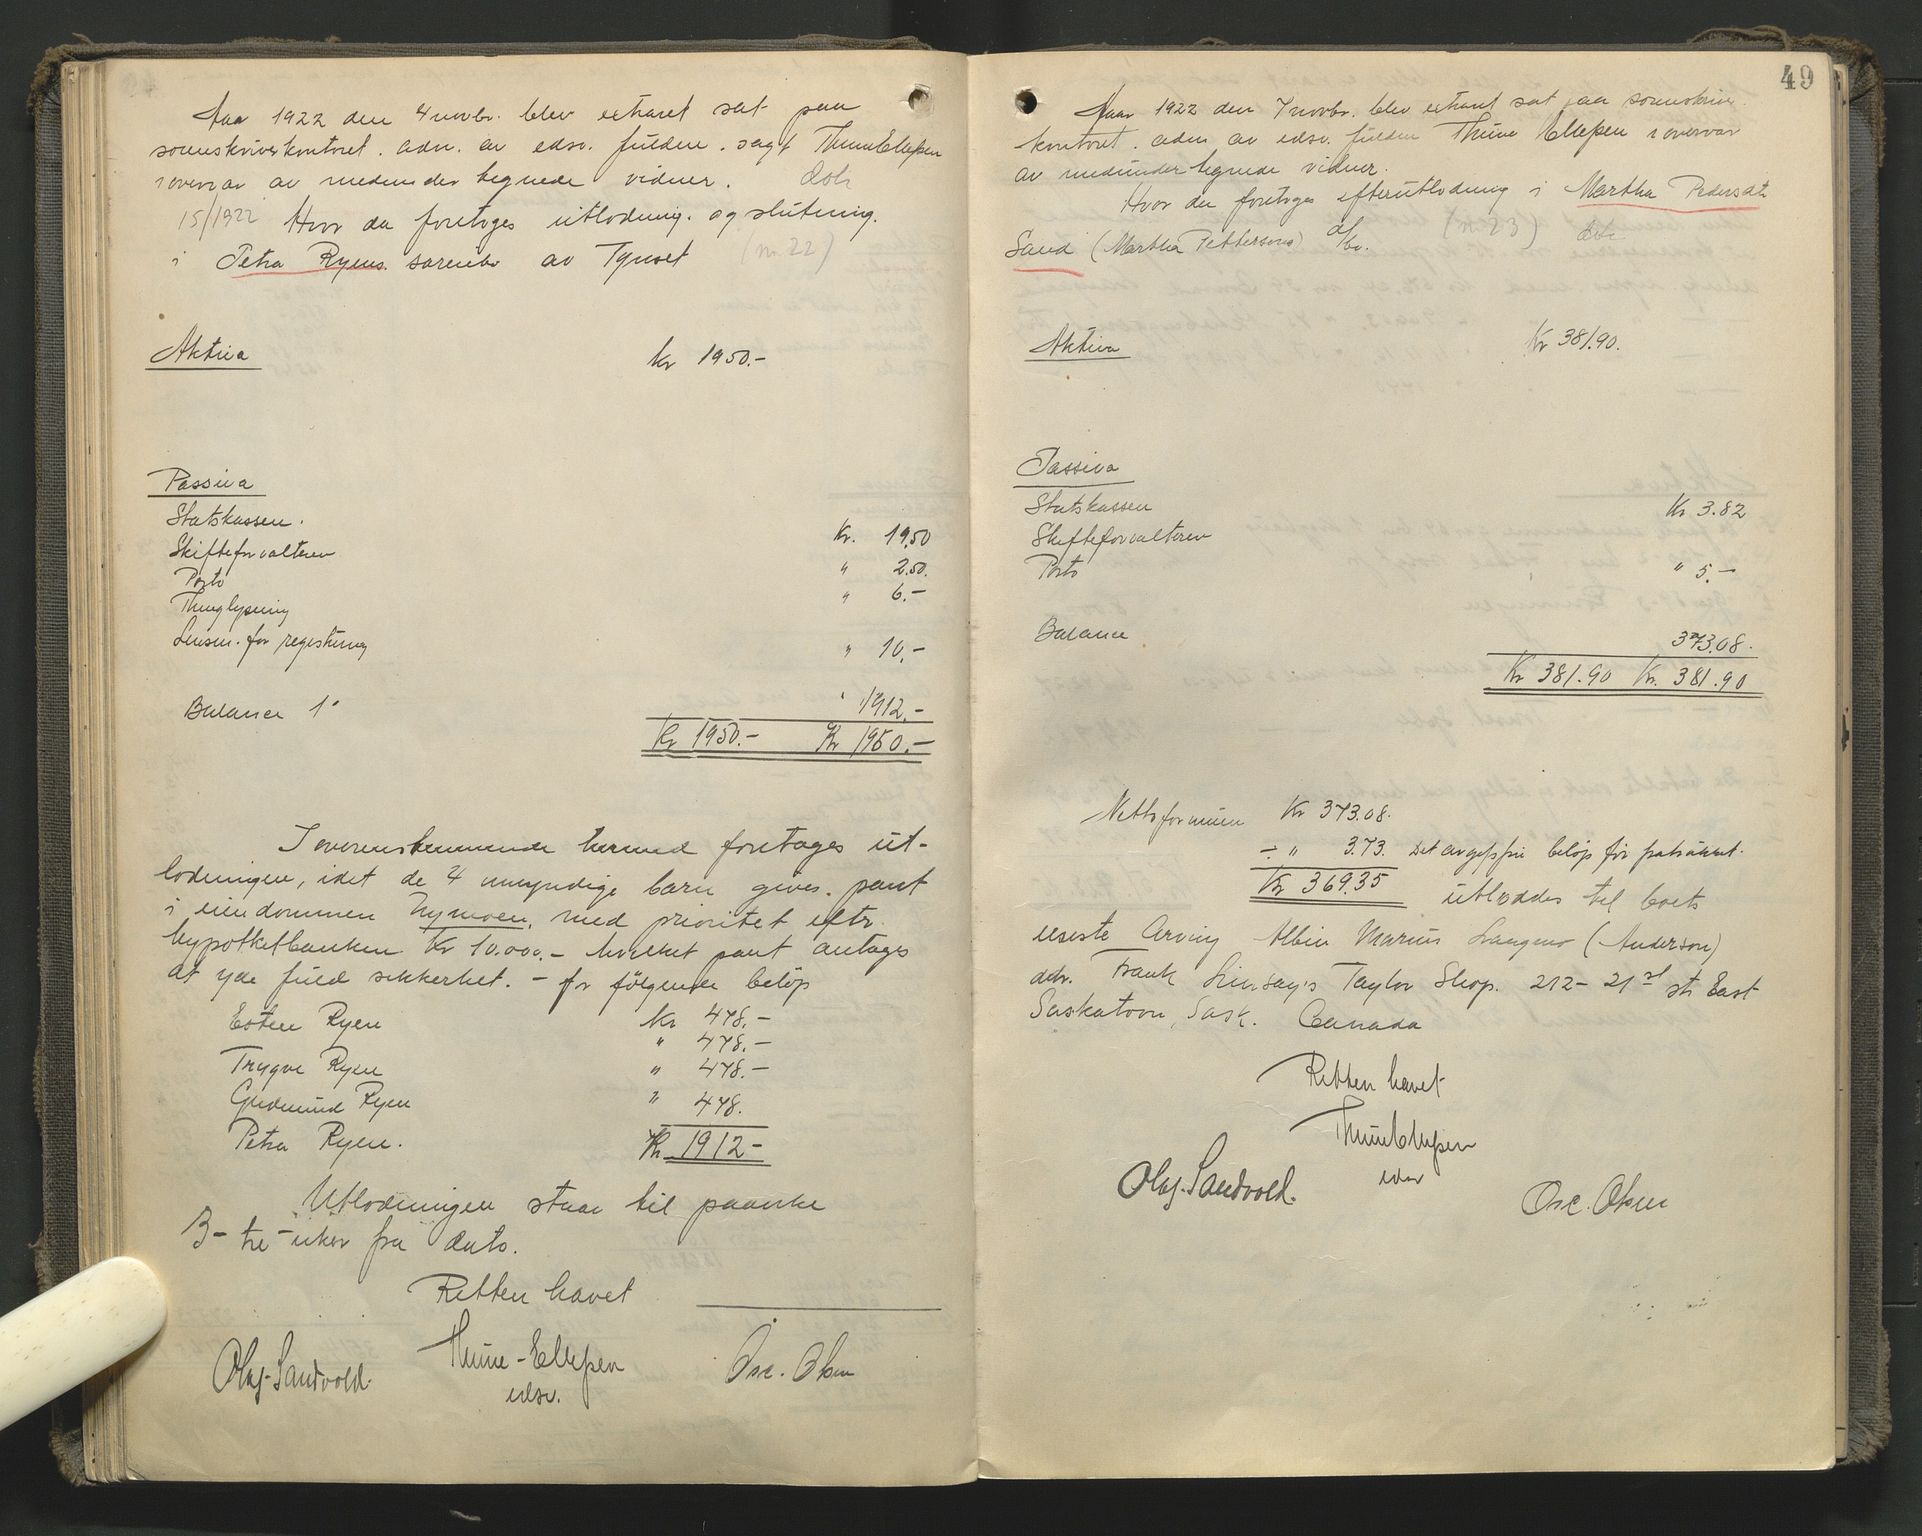 Aar 1922 den 4 novbr. blev extraret sat paa
sorenskriverkontoret. adm. av edsv. fuldm. sagf. Thune Ellefsen
i overvær av medundertegnede vidner. dok
15/1922 Hvor da foretoges utlodning. og slutning.
i Petra Ryens særeibo av Tynset (nr. 22)
Aktiva kr 1950.-
Passiva
Statskassen.
Skifteforvalteren Kr. 19.50
Porto " 2.50.
Thinglysning " 6.-
Lensm. for registrering " 10.-
Balance " 1912.-
Kr 1950.- Kr 1950.-
I overensstemmende hermed foretages ut-
lodningen, idet de 4 umyndige barn gives pant
i eiendommen Nymoen, med prioritet efter
hypotekbanken Kr 10.000.- hvilket pant antages
at yde fuld sikkerhet. - for følgende beløp
Esten Ryen Kr 478.-
Trygve Ryen " 478.-
Gudmund Ryen " 478.-
Petra Ryen. " 478.
Kr 1912-
Utlodningen staar til paaanke
3- tre - uker fra dato.
Retten hævet
Olaf Sandvold. Thune-Ellefsen Osc. Olsen
edsv.
49
Aar 1922 den 7 novbr. blev extraret sat paa sorenskriver
kontoret. adm av edsv. fuldm Thune Ellefsen i overvær
av medundertegnede vidner.
Hvor der foretoges efterutlodning i Martha Pedersdt
Sand (Martha Pettersons) d/bo. (nr 23) dok
Aktiva Kr 381.90.
Passiva
Statskassen Kr 3.82
Skifteforvalteren
Porto " 5.-
Balance 373.08.
Kr 381.90 Kr. 381.90
Nettoformuen Kr 373.08.
÷ " 3.73. Det avgifsfrie beløp
Kr 369.35 utloddes til boets
eneste Arving Albin Marius (Anderson)
adr. Frank Linsay's Taylor Shop. 212- 21st str East
Saskatoon, Sask. Canada
Retten hævet
Thune Ellefsen
edsv
Olaf Sandvold. Osc. Olsen